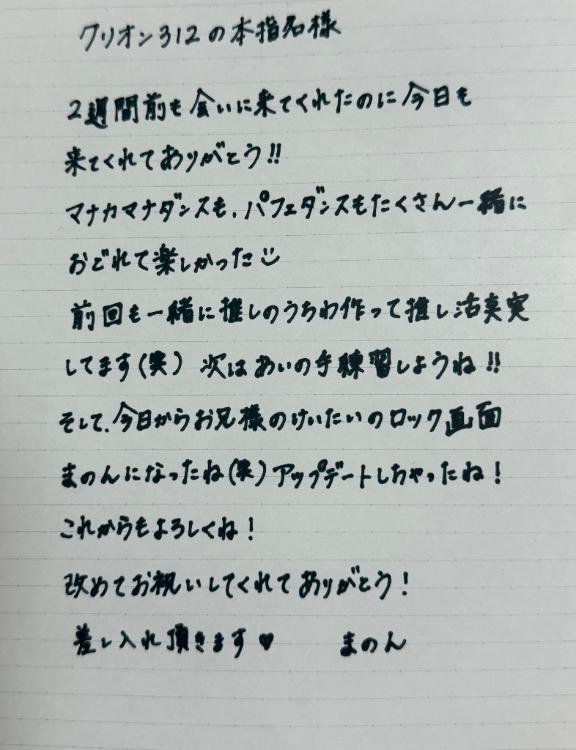 クリオン312の本指名様
2週間前も会いに来てくれたのに今日も
来てくれてありがとう!!
マナカマナダンスも、パフェダンスもたくさん一緒に
おどれて楽しかった
前回も一緒に推しのうちわ作って推し活真実
してます(笑) 次はあいの手練習しようね!!
そして、今日からお兄様のけいたいのロック画面
まのんになったね(笑)アップデートしちゃったね!
これからもよろしくね!
改めてお祝いしてくれてありがとう!
差し入れ頂きます♥ まのん